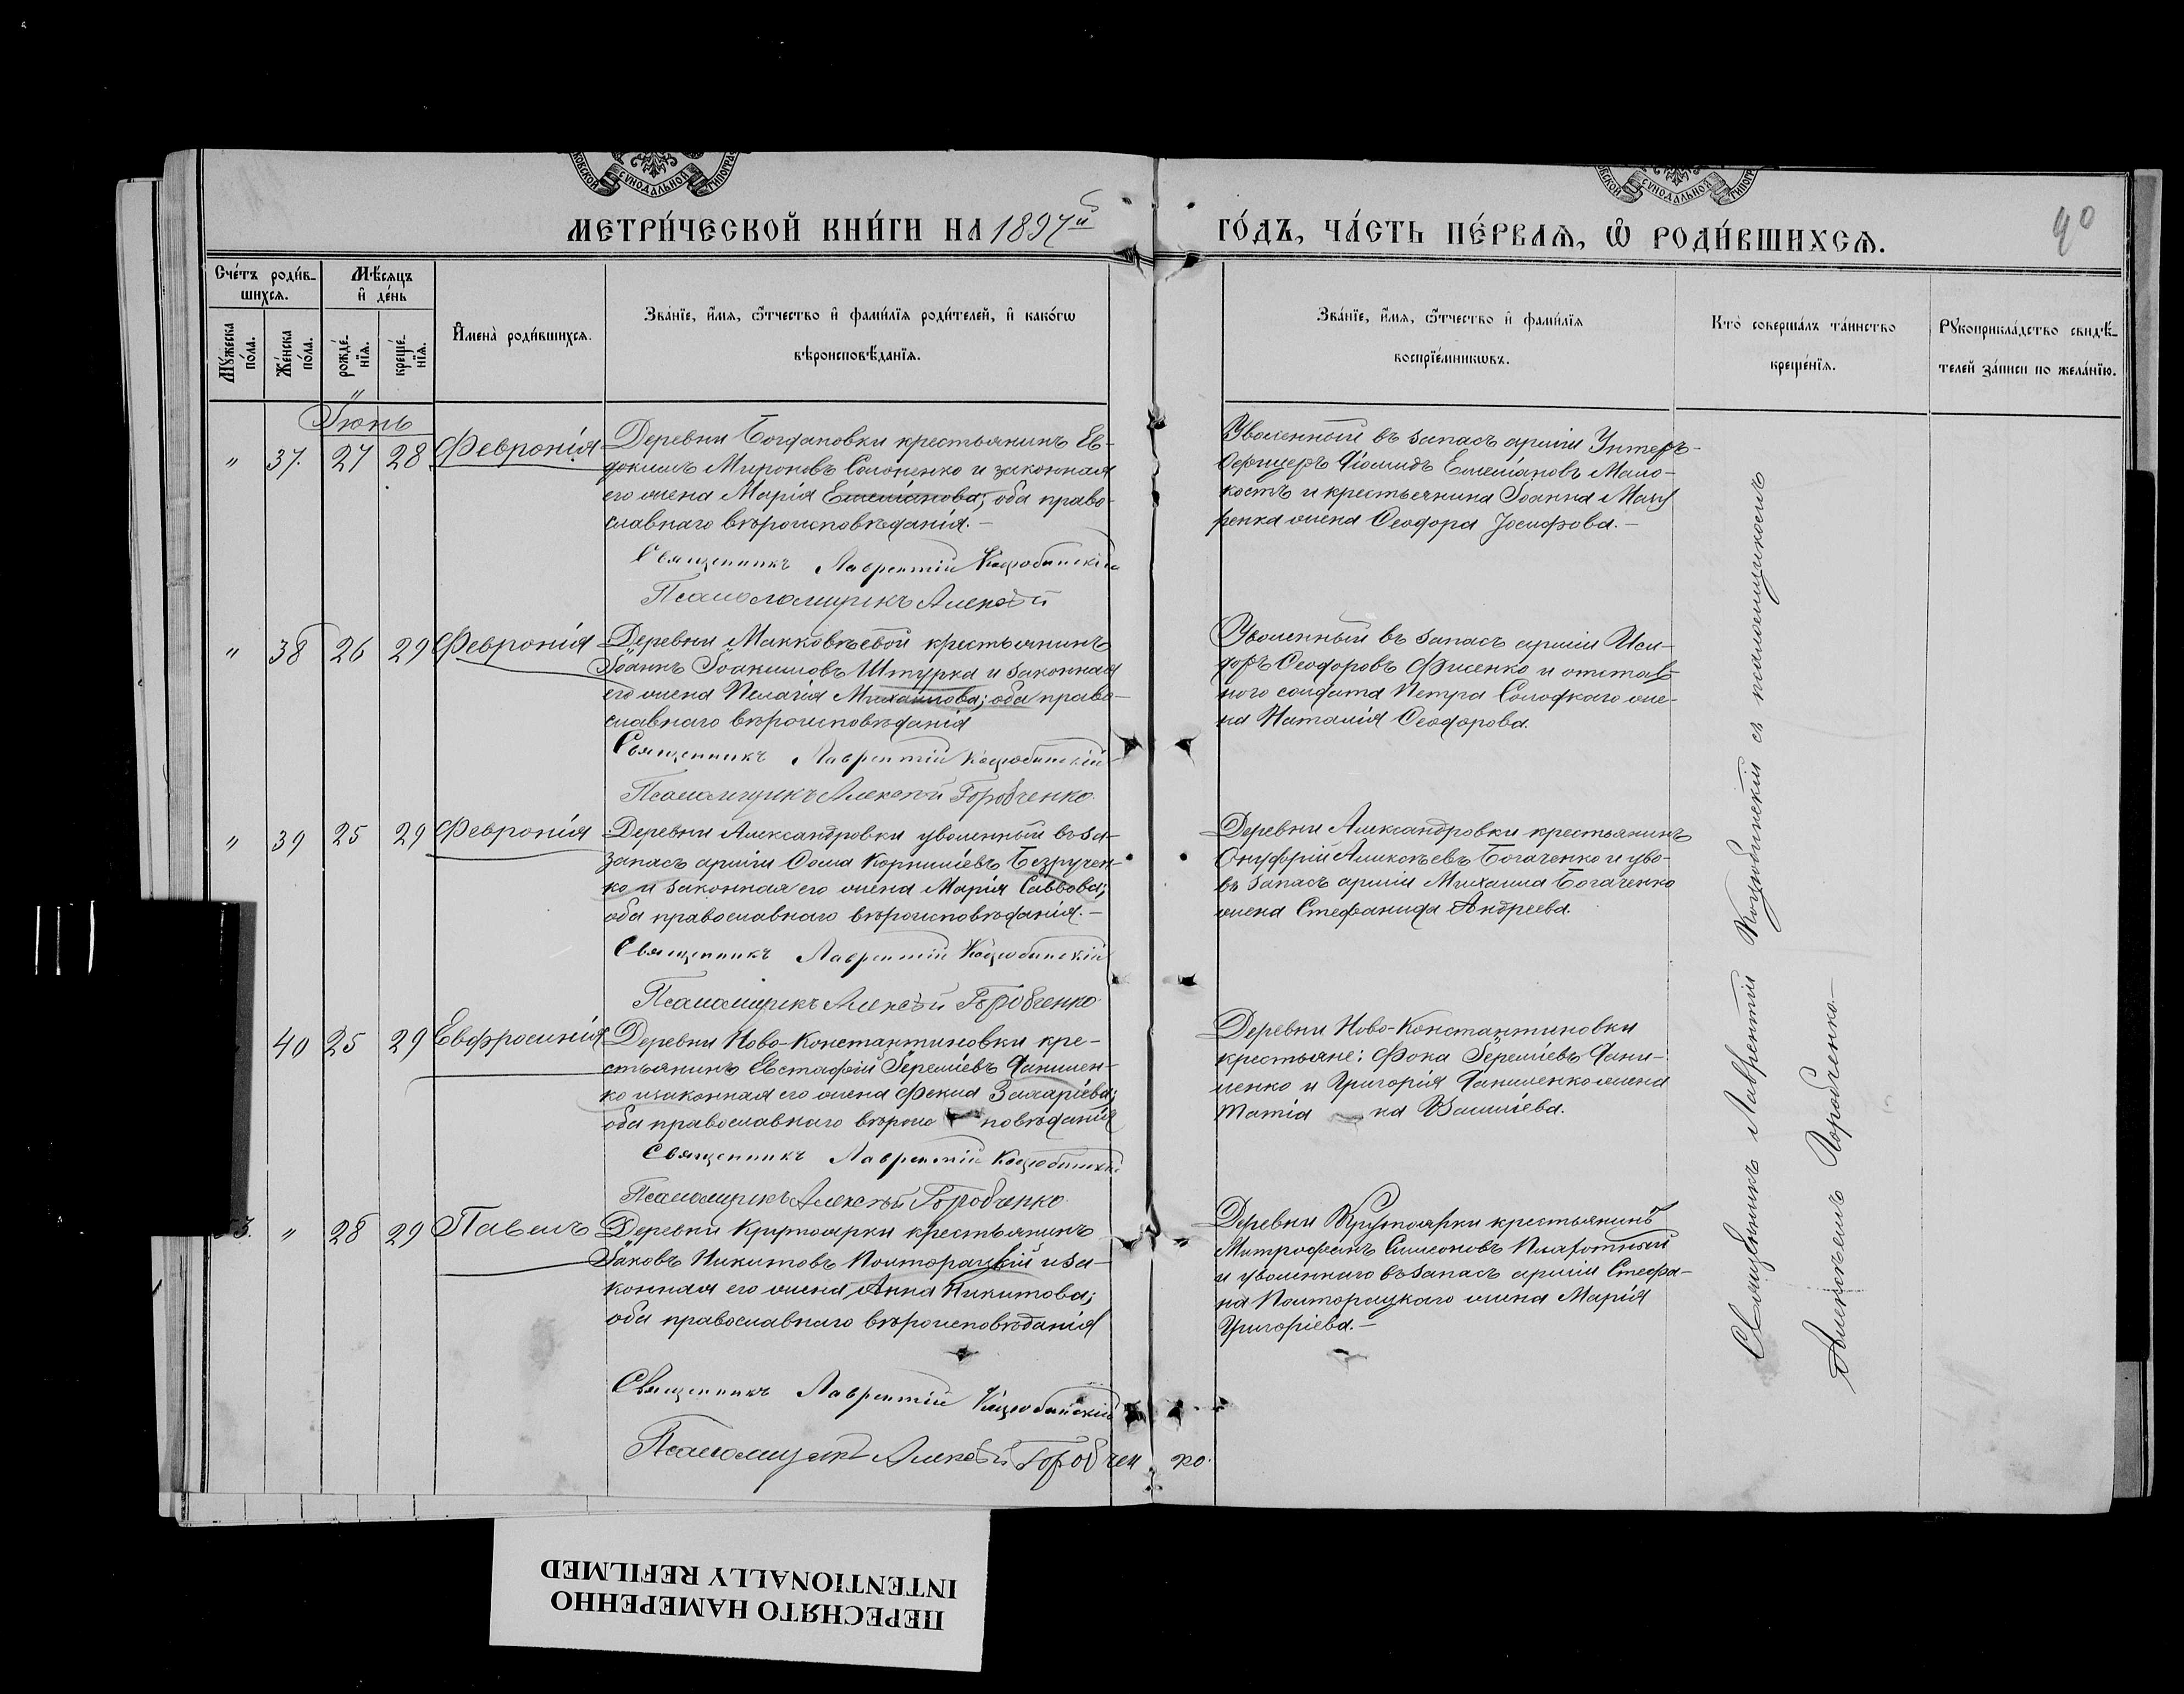 МЕТРИ́ЧЕСКОЙ КНИ́ГИ НА 1897й ГО́ДЪ, ЧА́СТЬ ПЕ́РВАѦ, Ѡ РОДИ́ВШИХСѦ.
90
Сче́тъ роди́в-
шихсѧ.
Мѣ́сѧцъ
и де́нь
Мꙋ́жеска по́ла.
Же́нска по́ла.
рожде́-
нїѧ.
креще́-
нїѧ.
И҆мена̀ роди́вшихсѧ.
Зва́нїе, и҆́мѧ, ѻ҆́тчество и҆ фами́лїѧ роди́телей, и҆ како́гѡ
вѣроисповѣ́данїѧ.
Зва́нїе, и҆́мѧ, ѻ҆́тчество и҆ фами́лїѧ
воспрїе́мникѡвъ.
Кто̀ соверша́лъ та́инство
креще́нїѧ.
Рꙋкоприкла́дство свидѣ́-
телей за́писи по жела́нїю.
Іюнь
" 37. 27 28 Февронія
Деревни Богдановки крестьянинъ Ев-
докимъ Мироновъ Солоненко и законная
его жена Марія Емеліанова; оба право-
славнаго вѣроисповѣданія.-
Священникъ Лаврентій Коцюбинскій
Псаломщикъ Алексѣй
Уволенный въ запасъ арміи Унтеръ-
Офицеръ Діомидъ Емеліановъ Мало-
кость и крестьянина Іоанна Мазу
ренка жена Ѳеодора Іосифова.-
" 38 26 29 Февронія
Деревни Макковѣевой крестьянинъ
Іоаннъ Іоакимовъ Штурка и законная
его жена Пелагія Михаилова; оба право-
славнаго вѣроисповѣданія
Священникъ Лаврентій Коцюбинскій
Псаломщикъ Алексѣй Горобченко.
Уволенный въ запасъ арміи Иси-
доръ Ѳеодоровъ Фисенко и отстав-
ного солдата Петра Солодкаго же-
на Наталія Ѳеодорова.
" 39 25 29 Февронія
Деревни Александровки уволенный въ за-
запасъ арміи Ѳома Корниліевъ Безручен-
ко и законная его жена Марія Саввова;
оба православнаго вѣроисповѣданія.-
Священникъ Лаврентій Коцюбинскій
Псаломщикъ Алексѣй Горобченко.
Деревни Александровки крестьянинъ
Онуфрій Алексѣевъ Богаченко и уво-
въ запасъ арміи Михаила Богаченко
жена Стефанида Андреева.
40 25 29 Евфросинія
Деревни Ново-Константиновки кре-
стьянинъ Евстафій Іереміевъ Данилен-
ко и законная его жена Фекла Захаріева;
оба православнаго вѣроис повѣданія
Священникъ Лаврентій Коцюбинскій
Псаломщикъ Алексѣй Горобченко
Деревни Ново-Константиновки
крестьяне: Фока Іереміевъ Дани-
ленко и Григорія Даниленко жена
Татіа на Василіева.
3. " 28 29 Павелъ
Деревни Крутоярки крестьянинъ
Іаковъ Никитовъ Полторацкій и за-
конная его жена Анна Никитова;
оба православнаго вѣроисповѣданія
Священникъ Лаврентій Коцюбинскій
Псаломщикъ Алексѣй Горобчен ко.
Деревни Крутоярки крестьянинъ
Митрофанъ Симоновъ Платотный
и уволеннаго въ запасъ арміи Стефа-
на Полторацкаго жена Марія
Григоріева.-
Священникъ Лаврентій Коцюбинскій съ псаломщикомъ
Алексѣемъ Горобченко-
ПЕРЕСНЯТО НАМЕРЕННО
INTENTIONALLY REFILMED